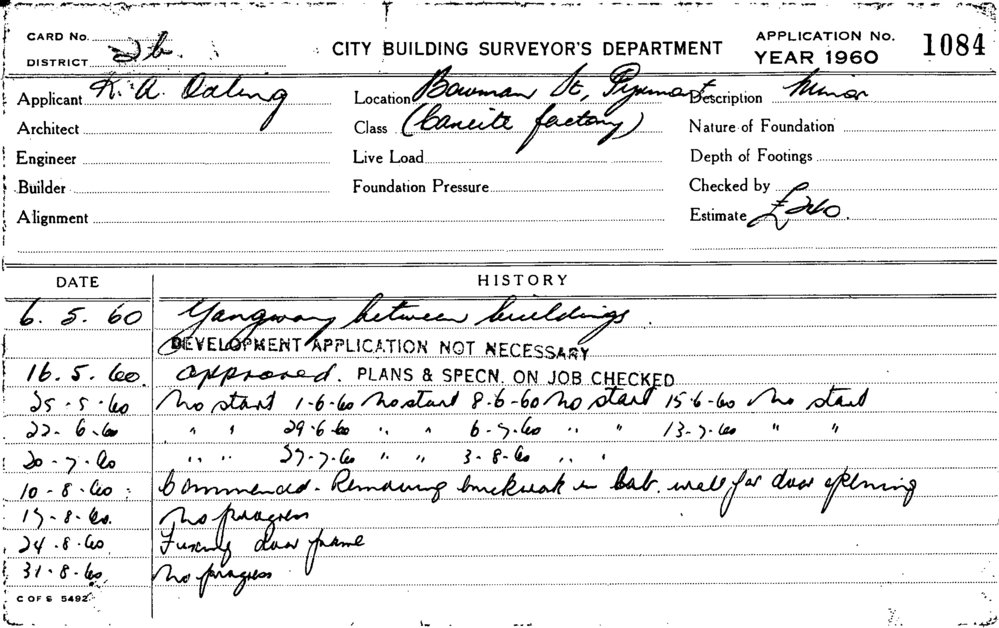 CARD No.
DISTRICT 2b.
CITY BUILDING SURVEYOR'S DEPARTMENT
APPLICATION No.
YEAR 1960
1084
Applicant K. A. Location Bowman St, Pyrmont Description Minor
Architect Class (Caneite factory) Nature of Foundation
Engineer Live Load Depth of Footings
Builder Foundation Pressure Checked by
Alignment Estimate £260.
DATE HISTORY
6. 5. 60 Gangway between buildings.
DEVELOPMENT APPLICATION NOT NECESSARY
16. 5. 60. approved. PLANS & SPECN. ON JOB CHECKED
25-5-60 No start 1-6-60 No start 8-6-60 No start 15-6-60 No start
22-6-60 " " 29-6-60 " " 6-7-60 " " 13-7-60 " "
20-7-60 " " 27-7-60 " " 3-8-60 " "
10-8-60 Commenced - Removing brickwork in wall for door opening
17-8-60. No progress
24-8-60 Fixing door frame
31-8-60 No progress
C OF S 5492